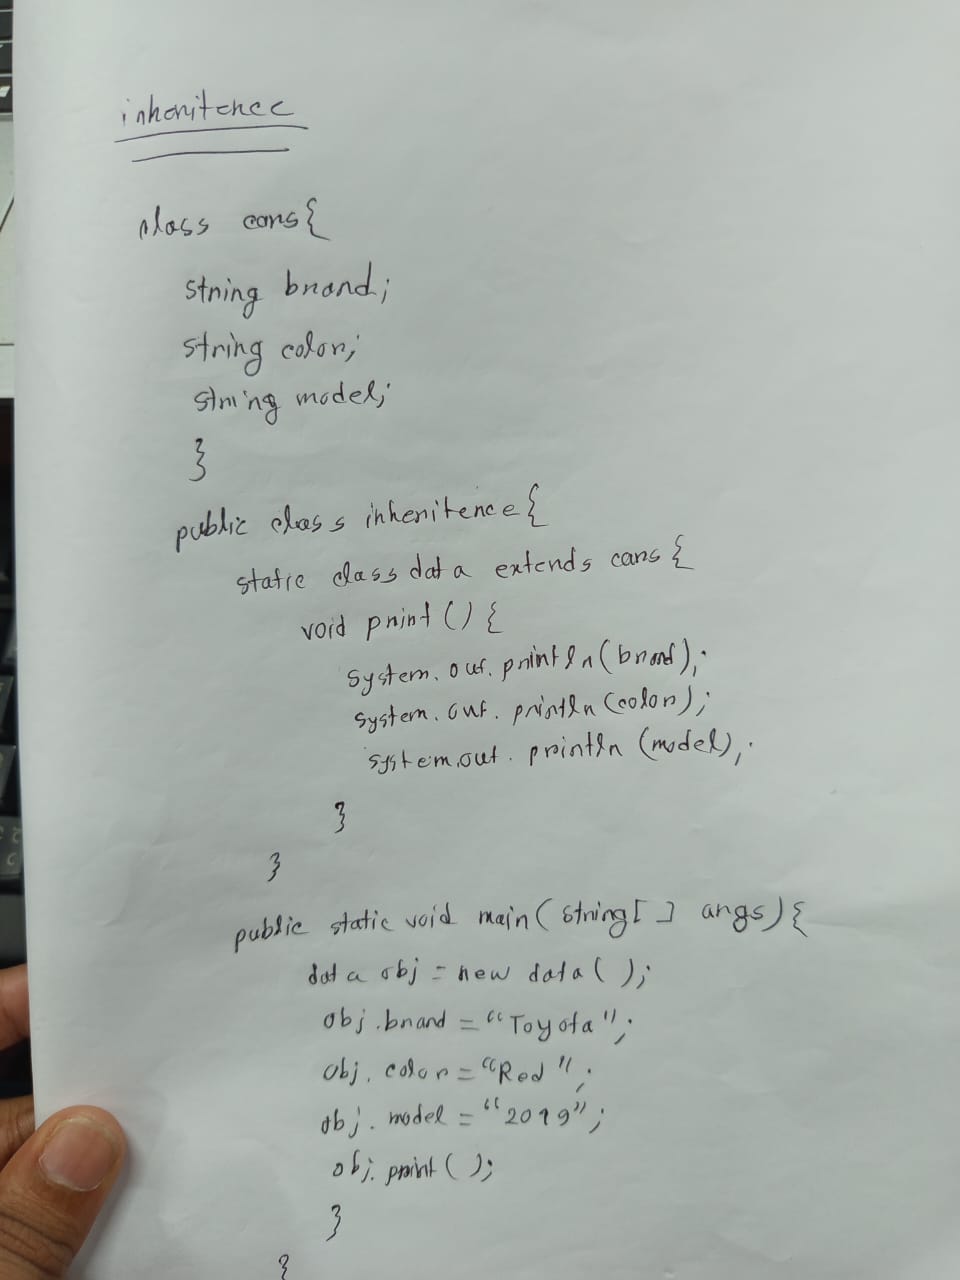 inheritence
class cars{
string brand;
string color;
string model;
}
public class inheritence{
static class data extends cars{
void print () {
system.out.println(brand);
system.out.println(color);
system.out.println(model);
}
}
public static void main(string[ ] args){
data obj = new data( );
obj.brand = "Toyota";
obj.color = "Red";
obj.model = "2019";
obj.print( );
}
}